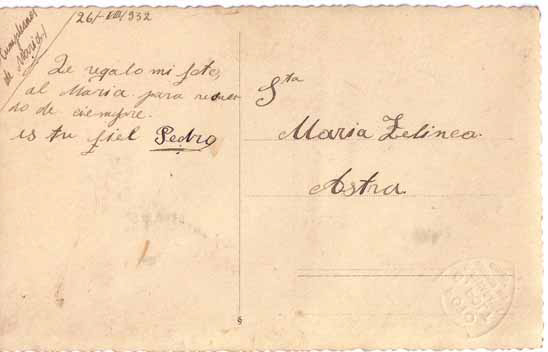 Cumpleaños
de Maria/
26/-VIII/932
Le regalo mi foto,
al Maria para recuer
do de ciempre.
es tu fiel Pedro
Sta
Maria Zelinca.
Astra.